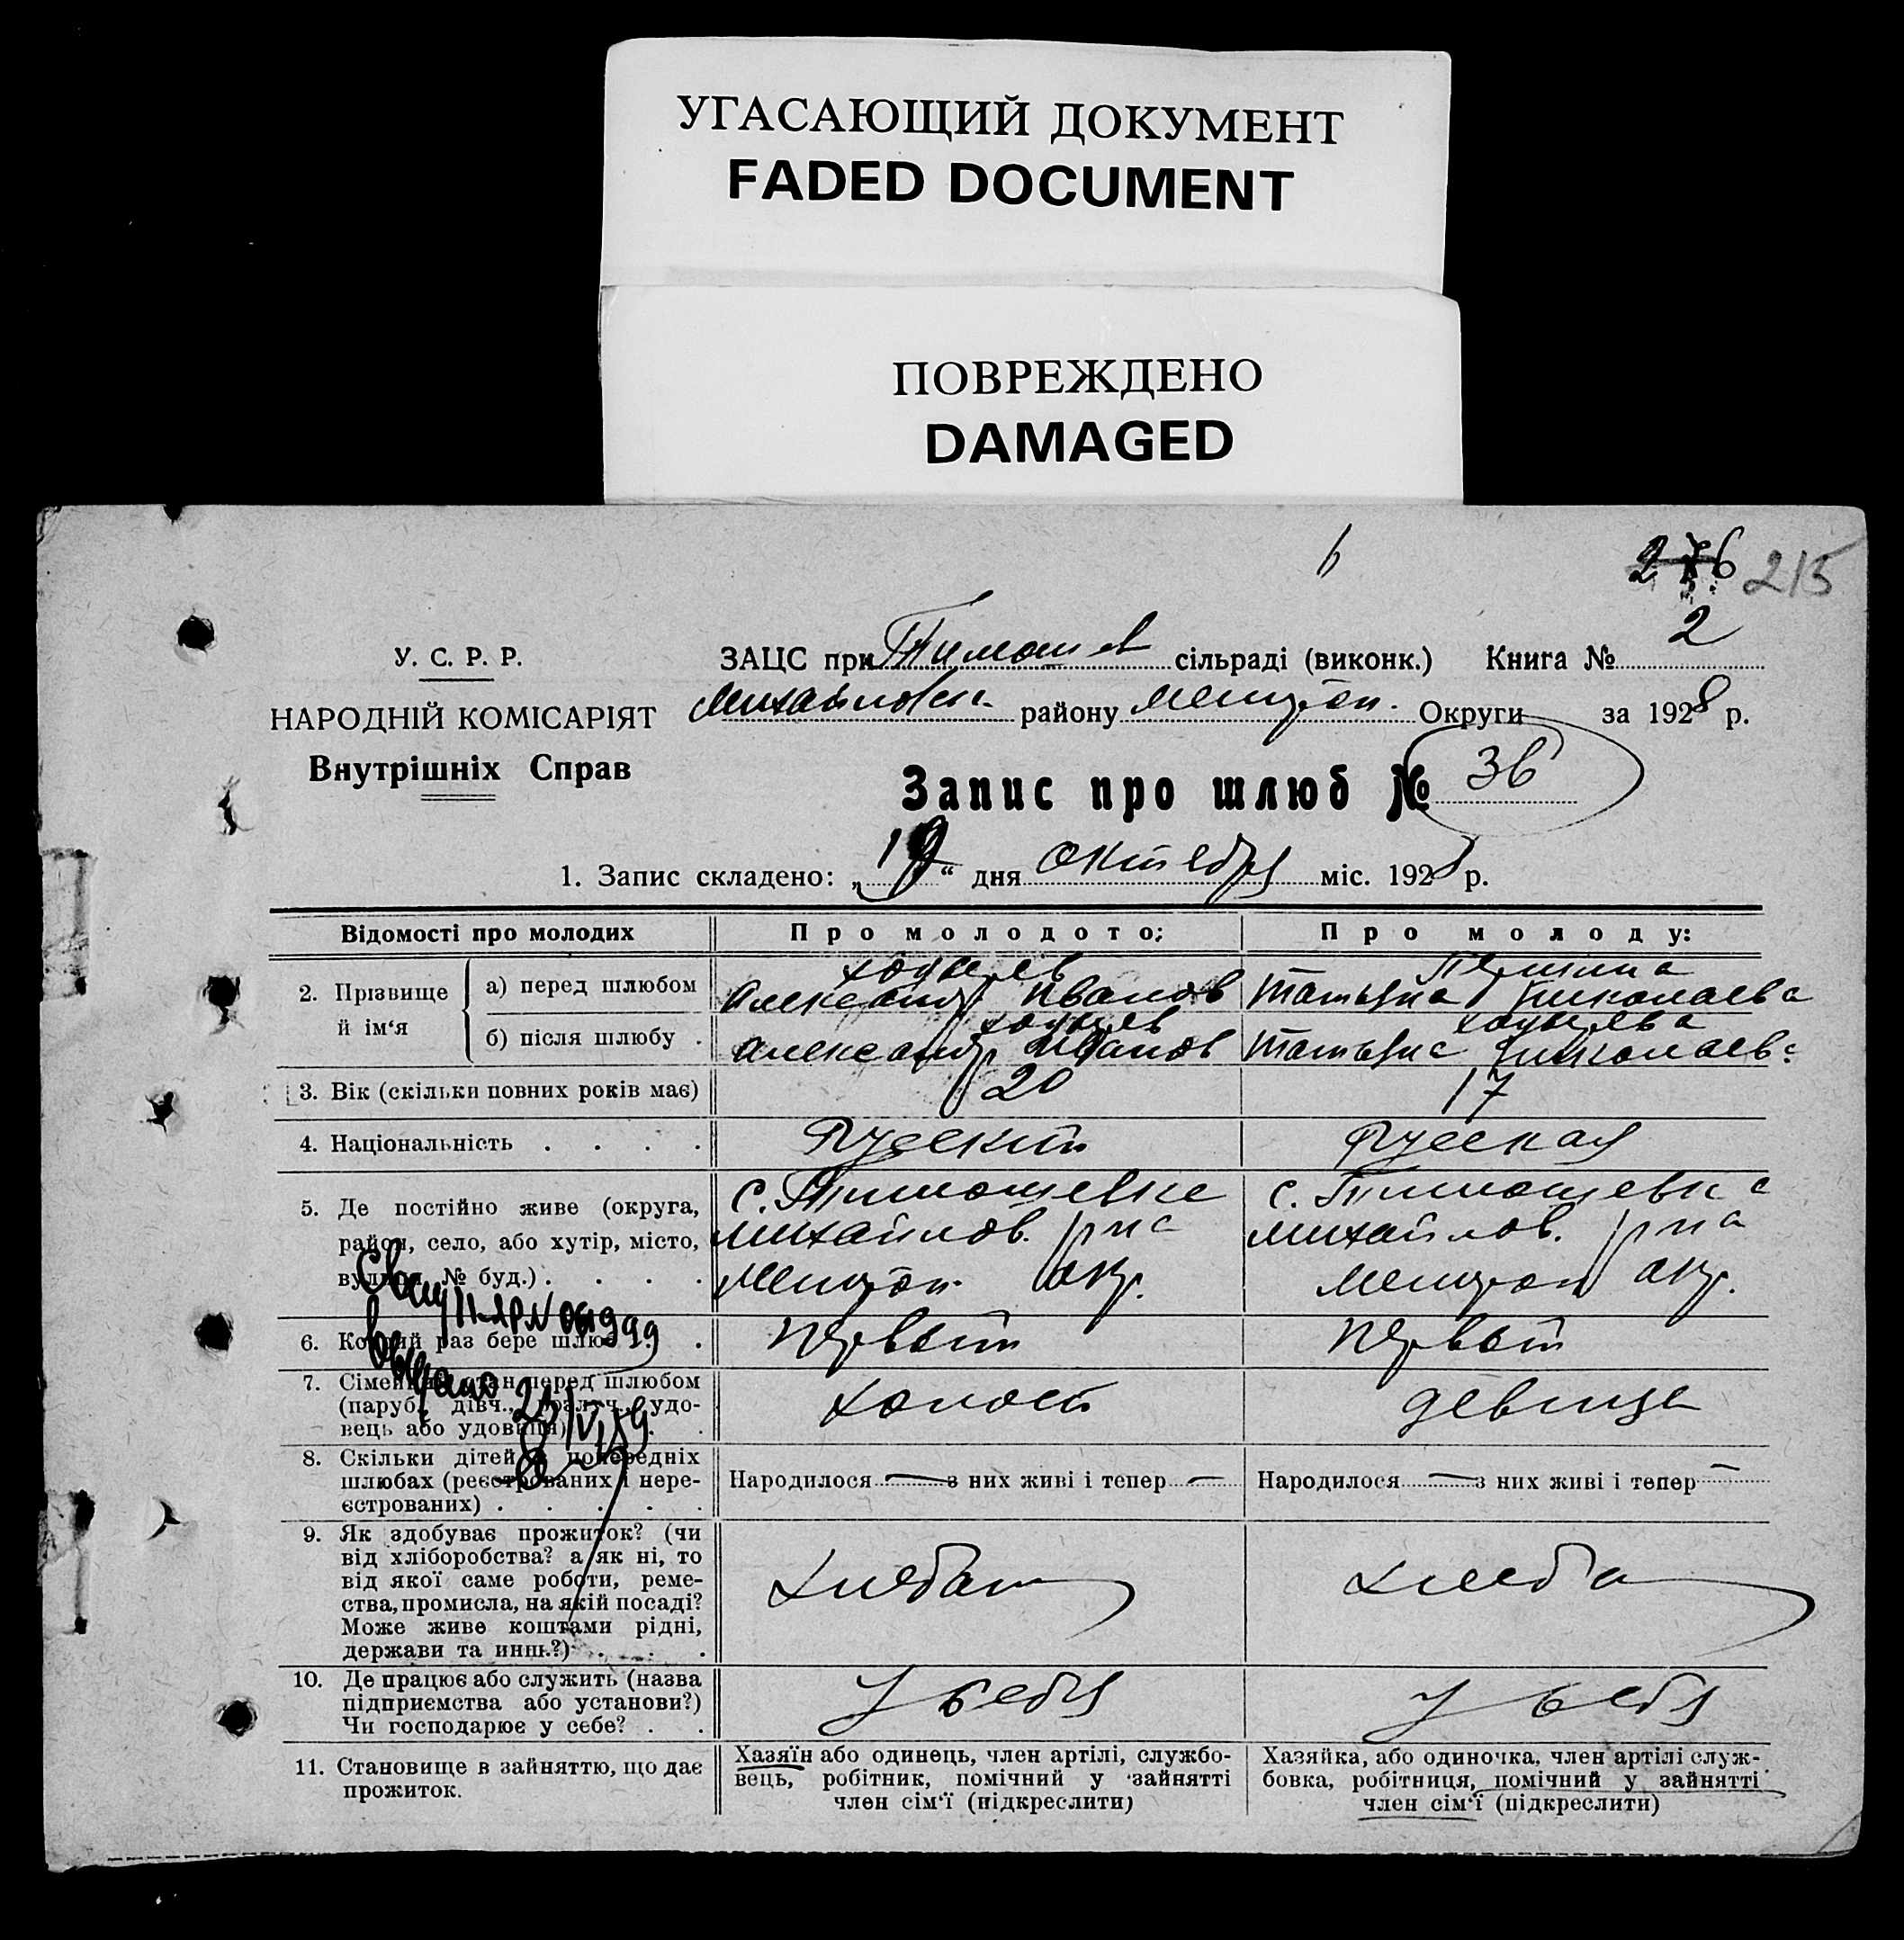 УГАСАЮЩИЙ ДОКУМЕНТ
FADED DOCUMENT
ПОВРЕЖДЕНО
DAMAGED
215
У. С. Р. Р.
НАРОДНІЙ КОМІСАРІЯТ
Внутрішніх Справ
ЗАЦС при Тимошев сільраді (виконк.) Книга № 2
Михайловск. району Мелитоп. Округи за 1928 р.
Запис про шлюб № 36
1. Запис складено: „19“ дня октября міс. 1928 р.
Відомості про молодих
Про молодого:
Про молоду:
2. Прізвище й ім‘я
а) перед шлюбом
Александр Иванов
Татьяна Николаева
б) після шлюбу .
Александр Иванов
Татьяна Николаев.
3. Вік (скільки повних років має)
20
17
4. Національність . . . .
Русский
Русская
5. Де постійно живе (округа,
район, село, або хутір, місто,
вулиця, № буд.) . . . .
с. Тимошевке
Михайлов. р-на
Мелитоп. окр.
с. Тимошевка
Михайлов. р-на
Мелитоп окр.
6. Котрий раз бере шлюб . .
Первый
Первый
7. Сімейний стан перед шлюбом
(паруб., дівч., розлуч., удо-
вець або удовиця) . .
холост
девица
8. Скільки дітей в попередніх
шлюбах (реєстрованих і нере-
єстрованих) . . . . .
Народилося — з них живі і тепер —
Народилося — з них живі і тепер —
9. Як здобуває прожиток? (чи
від хліборобства? а як ні, то
від якої саме роботи, реме-
ства, промисла, на якій посаді?
Може живе коштами рідні,
держави та инш.?) . . .
10. Де працює або служить (назва
підприємства або установи?)
Чи господарює у себе? . .
У себя
У себя
11. Становище в зайняттю, що дає
прожиток.
Хазяїн або одинець, член артілі, службо-
вець, робітник, помічний у зайнятті
член сім‘ї (підкреслити)
Хазяйка, або одиночка, член артілі служ-
бовка, робітниця, помічний у зайнятті
член сім‘ї (підкреслити)